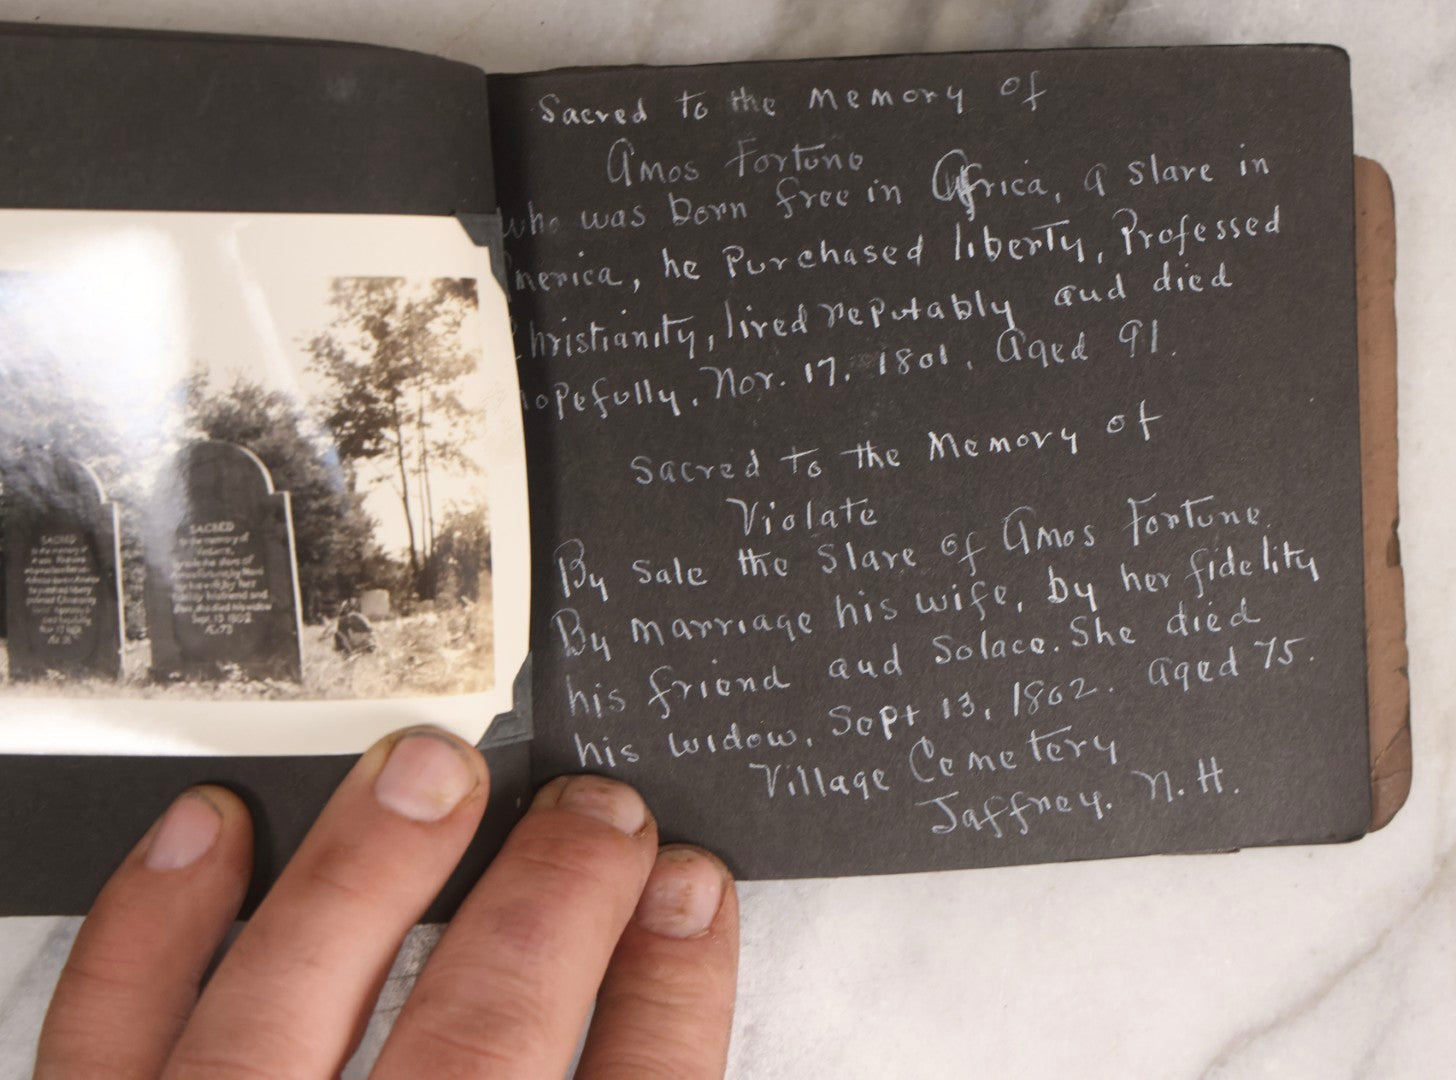 SACRED
to the memory of
SACRED
to the memory of
Sept. 13 1802
Sacred to the Memory of
Amos Fortune
who was born free in Africa, a slave in
America, he Purchased liberty, Professed
Christianity, lived reputably and died
hopefully, Nov. 17, 1801. Aged 91.
Sacred to the Memory of
Violate
By sale the Slave of Amos Fortune
By marriage his wife, by her fidelity
his friend and Solace. She died
his widow, Sept 13, 1802. aged 75.
Village Cemetery
Jaffrey. N.H.